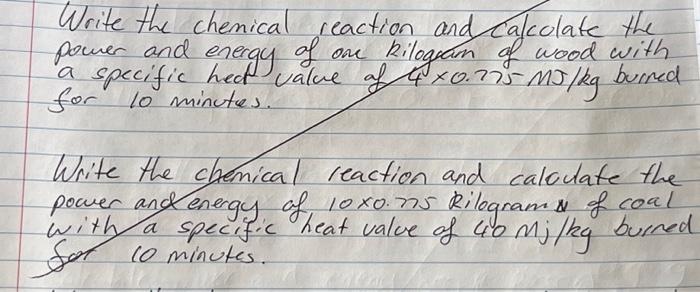 Write the chemical reaction and calculate the
power and energy of one kilogram of wood with
a specific heat value of 4×0.775 MJ/kg burned
for 10 minutes.
Write the chemical reaction and calculate the
power and energy of 10×0.775 kilograms of coal
with a specific heat value of 40 Mj/kg burned
for 10 minutes.